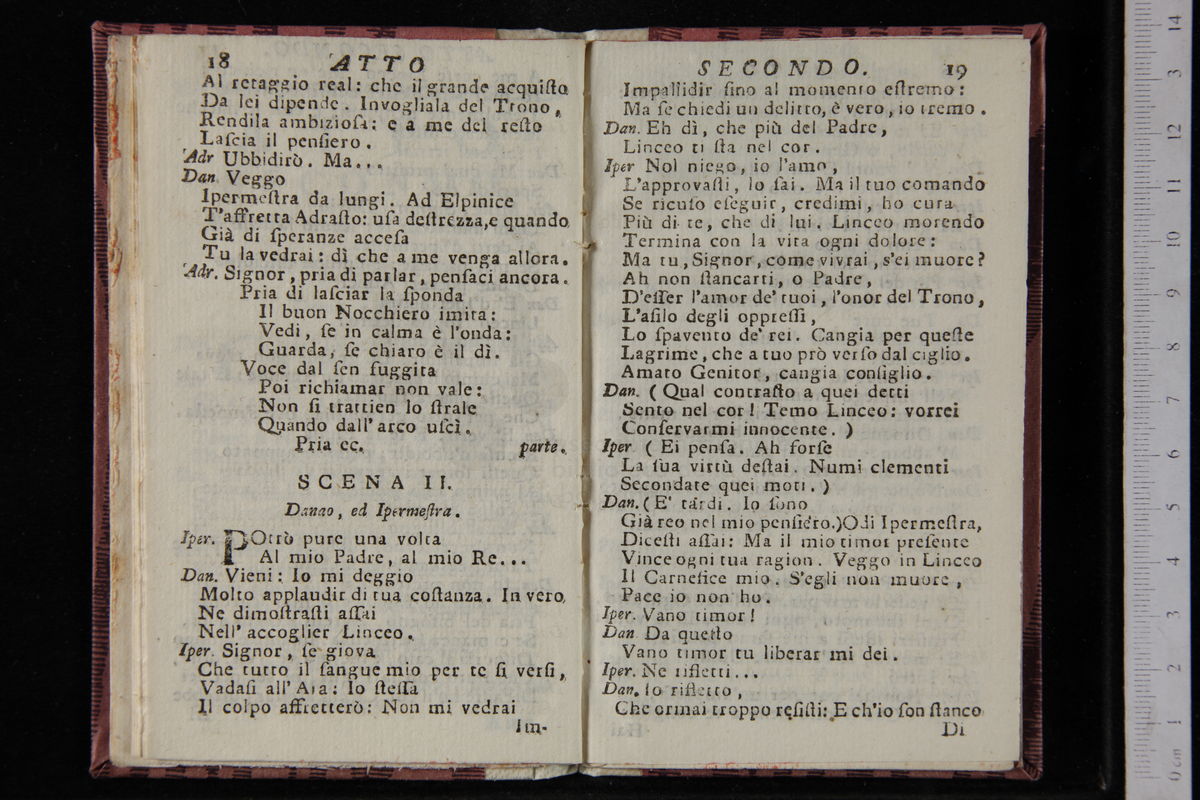 18 ATTO
Al retaggio real: che il grande acquiſto
Da lei dipende. Invogliala del Trono,
Rendila ambizioſa: e a me del reſto
Laſcia il penſiero.
Adr Ubbidirò. Ma...
Dan. Veggo
Ipermeſtra da lungi. Ad Elpinice
T'affretta Adraſto: uſa deſtrezza, e quando
Già di ſperanze acceſa
Tu la vedrai: dì che a me venga allora.
Adr. Signor, pria di parlar, penſaci ancora.
Pria di laſciar la ſponda
Il buon Nocchiero imita:
Vedi, ſe in calma è l'onda:
Guarda, ſe chiaro è il dì.
Voce dal ſen fuggita
Poi richiamar non vale:
Non ſi trattien lo ſtrale
Quando dall' arco uſcì.
Pria ec. parte.
SCENA II.
Danao, ed Ipermeſtra.
Iper. POtrò pure una volta
Al mio Padre, al mio Re...
Dan. Vieni: Io mi deggio
Molto applaudir di tua coſtanza. In vero,
Ne dimoſtraſti aſſai
Nell' accoglier Linceo.
Iper. Signor, ſe giova
Che tutto il ſangue mio per te ſi verſi,
Vadaſi all' Ara: Io ſteſſa
Il colpo affretterò: Non mi vedrai
Im-
SECONDO. 19
Impallidir ſino al momento eſtremo:
Ma ſe chiedi un delitto, è vero, io tremo.
Dan. Eh dì, che più del Padre,
Linceo ti ſta nel cor.
Iper Nol niego, io l'amo,
L'approvaſti, lo ſai. Ma il tuo comando
Se ricuſo eſeguir, credimi, ho cura
Più di te, che di lui. Linceo morendo
Termina con la vita ogni dolore:
Ma tu, Signor, come vivrai, s'ei muore?
Ah non ſtancarti, o Padre,
D'eſſer l'amor de' tuoi, l'onor del Trono,
L'aſilo degli oppreſſi,
Lo ſpavento de' rei. Cangia per queſte
Lagrime, che a tuo prò verſo dal ciglio.
Amato Genitor, cangia conſiglio.
Dan. (Qual contraſto a quei detti
Sento nel cor! Temo Linceo: vorrei
Conſervarmi innocente.)
Iper (Ei penſa. Ah forſe
La ſua virtù deſtai. Numi clementi
Secondate quei moti.)
Dan. (E' tardi. Io ſono
Già reo nel mio penſiero.) Odi Ipermeſtra,
Diceſti aſſai: Ma il mio timor preſente
Vince ogni tua ragion. Veggo in Linceo
Il Carnefice mio. S'egli non muore,
Pace io non ho.
Iper. Vano timor!
Dan Da queſto
Vano timor tu liberar mi dei.
Iper. Ne rifletti...
Dan. Io rifletto,
Che ormai troppo reſiſti: E ch'io ſon ſtanco
Di